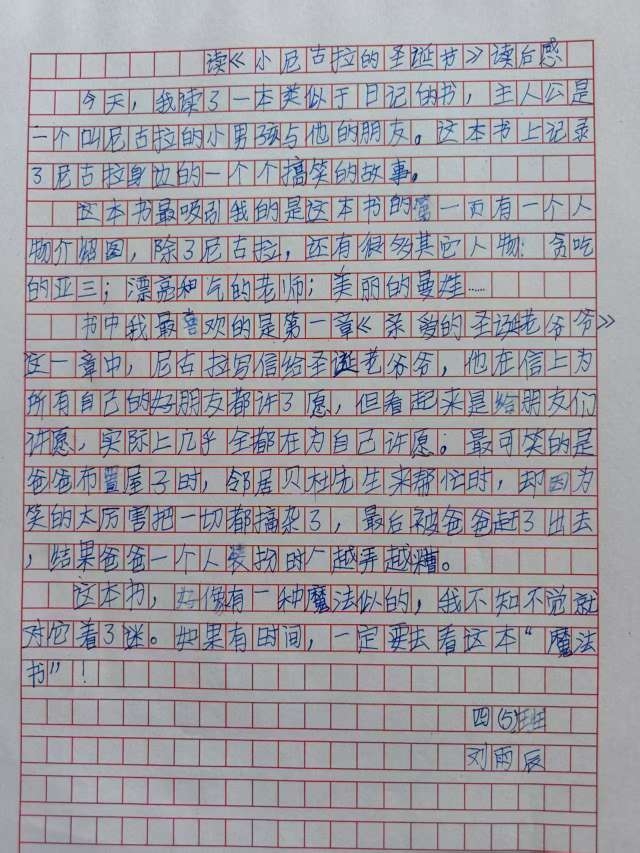 读《小尼古拉的圣诞书》读后感
今天，我读了一本类似于日记的书，主人公是
一个叫尼古拉的小男孩与他的朋友。这本书上记录
了尼古拉身边的一个个搞笑的故事。
这本书最吸引我的是这本书的第一页有一个人
物介绍图，除了尼古拉，还有很多其它人物：贪吃
的亚三；漂亮和气的老师；美丽的曼娃……
书中我最喜欢的是第一章《亲爱的圣诞老爷爷》
这一章中，尼古拉写信给圣诞老爷爷，他在信上为
所有自己的好朋友都许了愿，但看起来是给朋友们
许愿，实际上几乎全都在为自己许愿。最可笑的是
爸爸布置屋子时，邻居贝杜先生来帮忙时，却因为
笑的太厉害把一切都搞杂了，最后被爸爸赶了出去
，结果爸爸一个人装扮时，越弄越糟。
这本书，好像有一种魔法似的，我不知不觉就
对它着了迷。如果有时间，一定要去看这本“魔法
书”！
四(5)班
刘雨辰